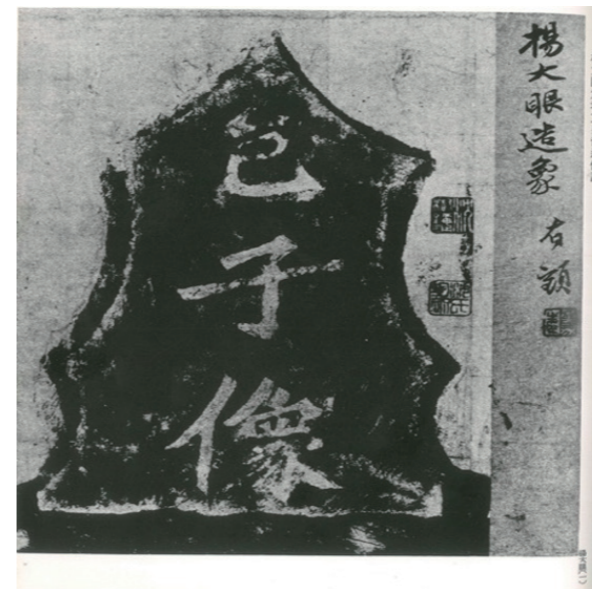 楊大眼造象 右額
邑子像